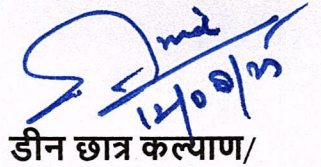 12/08/25
डीन छात्र कल्याण/